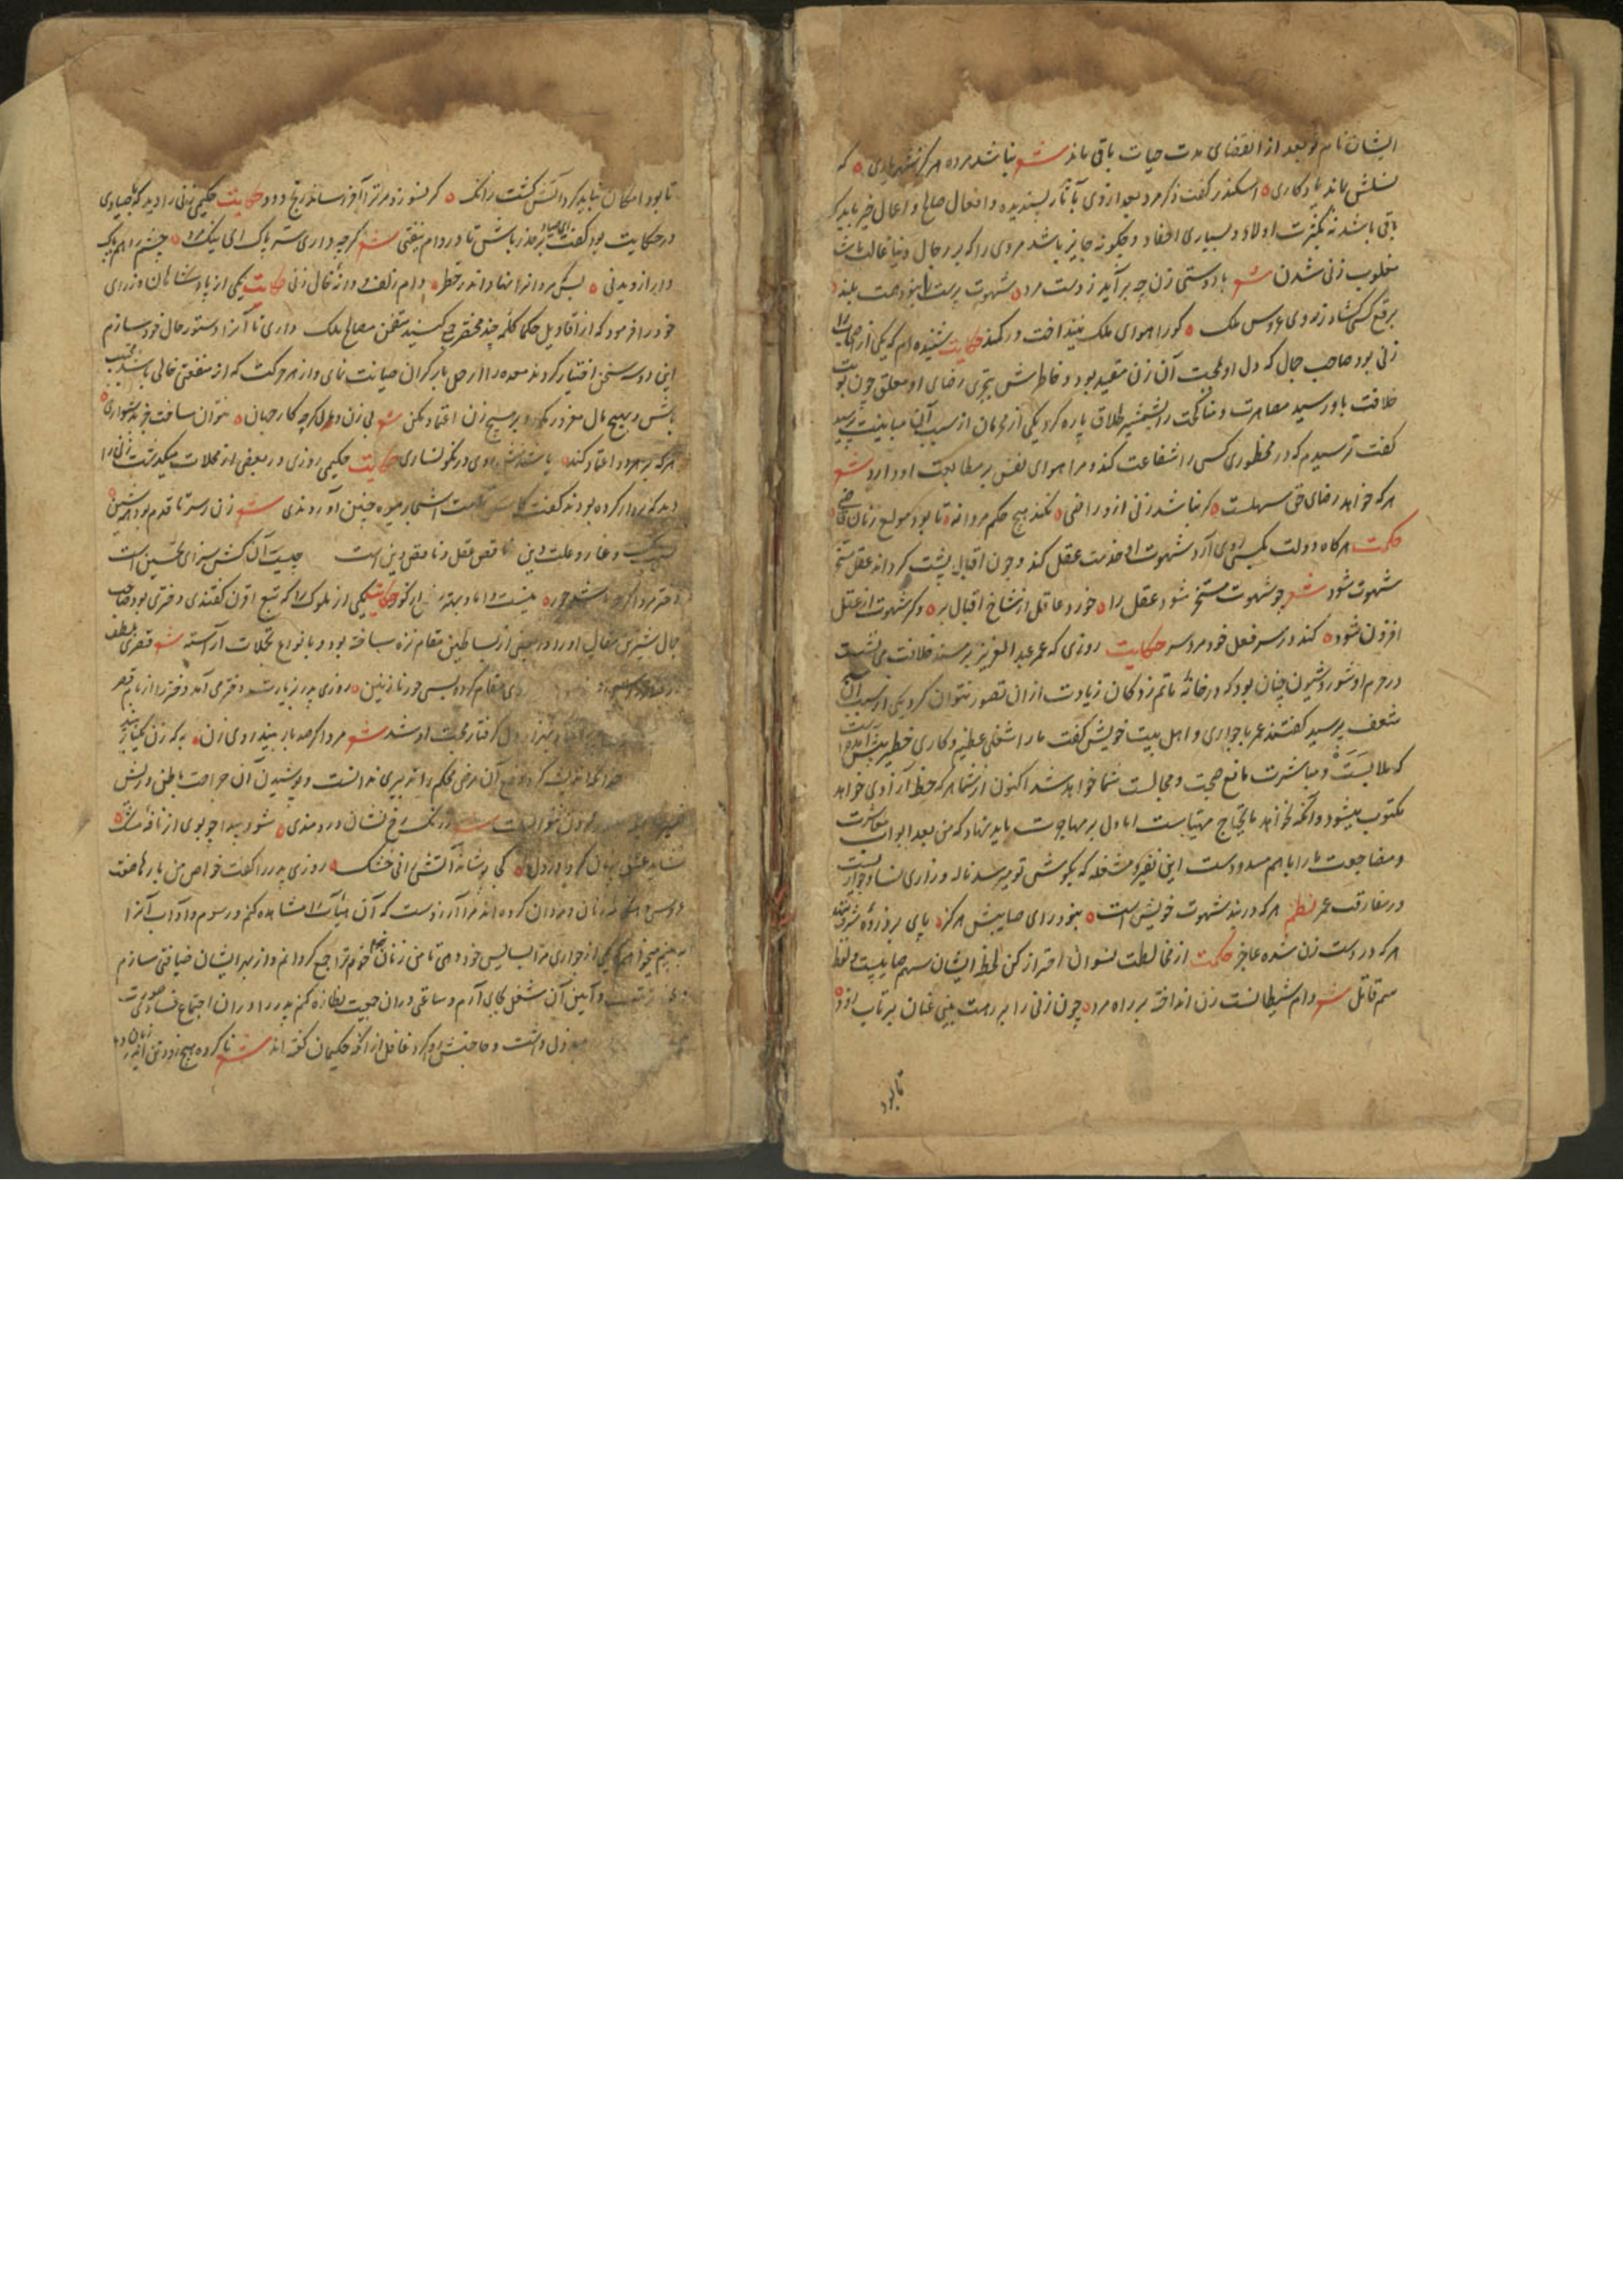 ایشان نام تو بعد از انقضای مدت حیات باقی ماند شعر نباشد مرده هرگز شهریاری ه که
نسلش ماند یادکاری ه اسکندر گفت ذکر مرد بعد از وی بآثار پسندیده و افعال صالح و اعمال خیر باید که
باقی باشد نه بکثرت اولاد و بسیاری احفاد و چکونه جایز باشد مردی را که بر رجال دنیا غالب باشد
مغلوب زنی شدن شعر با دوستی زن چه برآید ز دست مرد ه شهوت پرست را نبود همت بلند
برقع کسی کشاد ز روی عروس ملک ه کو را هوای ملک نینداخت در کمند حکایت شنیده ام که یکی از خلفا را
زنی بود صاحب جمال که دل او بمحبت آن زن مقید بود و خاطرش بتحری رضای او معلق چون نوبت
خلافت باو رسید مصاهرت و مناکحت را بشمشیر طلاق پاره کرد یکی از محرمان از سبب آن مباینت پرسید
گفت ترسیدم که در محظوری کسی را شفاعت کند و مرا هوای نفس بر مطابعت او دارد شعر
هر که خواهد رضای حق سهلست ه کر نباشد زنی ازو راضی ه نکند هیچ حکم مردانه ه تا بود مولع زنان قاضی
حکمت هرکاه دولت بکسی روی آرد شهوت او خدمت عقل کند و چون اقبال پشت کرداند عقل مسخر
شهوت شود شعر چو شهوت مسخر شود عقل را ه خورد عاقل از شاخ اقبال بر ه وکر شهوت از عقل
افزون شود ه کند در سر فعل خود مرد سر حکایت روزی که عمر عبد العزیز بر مسند خلافت می نشست
در حرم او شور و شیون چنان بود که در خانه ماتم زدکان زیادت از ان تصور نتوان کرد یکی از سبب آن
شعف پرسید گفتند عمر با جواری و اهل بیت خویش گفت ما را شغلی عظیم و کاری خطیر پیش آمده است
که ملابست و مباشرت مانع صحبت و مجالست شما خواهد شد اکنون از شما هر که خط آزادی خواهد
مکتوب میشود و آنکه نخواهد مایحتاج مهیاست اما دل بر مهاجرت باید نهاد که من بعد ابواب معاشرت
و مضاجعت ما را با هم مسدودست این نفیر و مشغله که بکوش تو میرسد ناله و زاری نسا و جواریست
در مفارقت عمر نظم هر که در بند شهوت خویش است ه نبود رای صایبش هرکز ه پای بر ذروه شرف ننهد
هر که در دست زن شده عاجز حکمت از مخالطت نسوان احتراز کن لحظ ایشان سهم صایبست و لفظ
سم قاتل شعر دام شیطانست زن انداخته بر راه مرد ه چون زنی را بر رهت بینی عنان بر تاب زود ه
تا بود
تا بود امکان نباید کرد آتش کشت رانک ه کر نسوزد مر ترا آخر رساند رنج دود حکایت حکیمی زنی را دید که با صیادی
در حکایت بود گفت ای صیاد بر حذر باش تا در دام نیفتی شعر کرچه داری ستر پاک ای نیک مرد ه چشم را هم پاک
دار از دیدنی ه بس که مردانرا نهاد اندر خطر ه دام زلف و دانه خال زنی حکایت یکی از پادشاهان وزرای
خود را فرمود که از اقاویل حکما کلمه چند مختصر جمع کنید متضمن مصالح ملک داری تا آنرا دستور حال خود سازم
این دو سه سخن اختیار کردند معده را از حمل بار کران صیانت نمای و از هر حرکت که از منفعتی خالی باشد مجتنب
باش و بهیچ مال مغرور مکرد و بر هیچ زن اعتماد مکن شعر بی زن و مال کرچه کار جهان ه نتوان ساخت جز بدشواری ه
هر که بر هر دو اعتماد کند ه باشدش روی در نکونساری حکایت حکیمی روزی در بعضی از محلات میکذشت زنی را
دید که بر دار کرده بودند گفت کاش همه اشجار میوه چنین آوردندی شعر زن ز سر تا قدم بود همه شین
ننک و عار و علت و این ناقص عقل و ناقص دین است چیست آن کش سزای تحسین است
دختر مرد اکرچه باشد حور ه نیست داماد بهتر از کور حکایت یکی از ملوک را که تبع اقرن گفتندی دختری بود صاحب
جمال شیرین مقال او را در بعضی از بساطین مقام نزه ساخته بود و بانواع تجملات آراسته شعر قصری بلطف
مقام کرده بسی حور نازنین ه روزی پدر بزیارت دختر می آمد دختر را از بام قصر
دل گرفتار محبت او شد شعر مرد اکر صد بار بیند روی زن ه به که زن یکبار بیند
اندیشه کرد دفع آن مرض محکم را تدبیری ندانست و پوشیدن آن جراحت باطنی و ریش
نتوانست شعر رنک رخ نشان دردمندی ه شود پیدا چو بوی از نافه مشک ه
نشاید عشق پنهان کرد در دل ه کی پوشاند آتش انی خشک ه روزی پدر را گفت خواص من بارها صفت
مردان کرده اند مرا آرزوست که آن هیأت را مشاهده کنم و رسوم و آداب آنرا
به بینم میخواهم یکی از جواری مرا لباس خود دهی تا من زنان خدم ترا جمع کردانم و از بهر ایشان ضیافتی سازم
و آیین آن شغل بجای آرم و ساعتی در ان جمعیت نظاره کنم پدر را در ان اجتماع نساء
دل داشت و حاجتش روا کرد غافل از آنکه حکیمان گفته اند شعر ناکرده هیچ زود تن